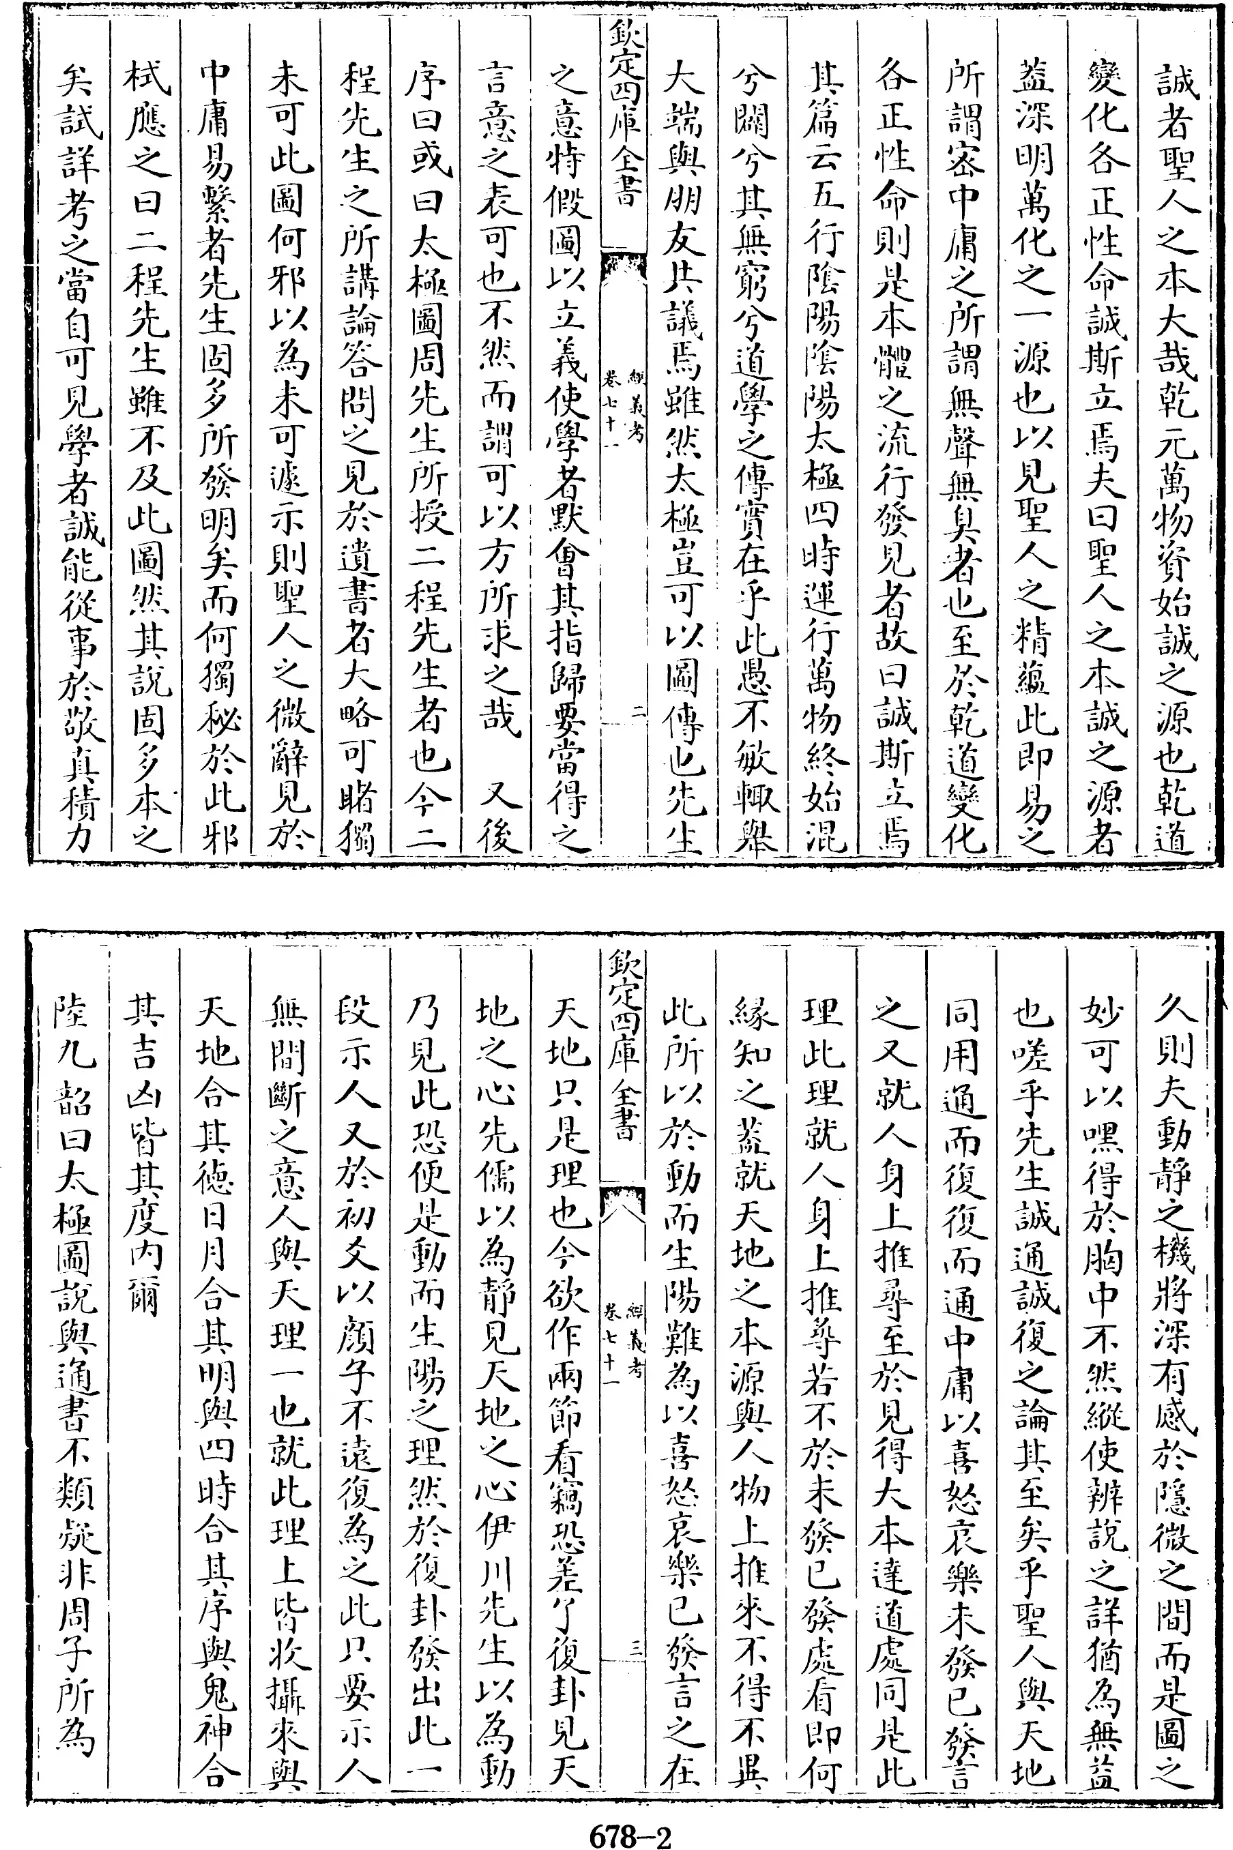 誠者聖人之本大哉乾元萬物資始誠之源也乾道
變化各正性命誠斯立焉夫曰聖人之本誠之源者
葢深明萬化之一源也以見聖人之精蘊此即易之
所謂宻中庸之所謂無聲無臭者也至於乾道變化
各正性命則是本體之流行發見者故曰誠斯立焉
其篇云五行陰陽陰陽太極四時運行萬物終始混
兮闢兮其無窮兮道學之傳實在乎此愚不敏輙舉
大端與朋友共議焉雖然太極豈可以圖傳也先生
欽定四庫全書
經義考
卷七十一
二
之意特假圖以立義使學者默會其指歸要當得之
言意之表可也不然而謂可以方所求之哉　又後
序曰或曰太極圖周先生所授二程先生者也今二
程先生之所講論答問之見於遺書者大略可睹獨
未可此圖何邪以為未可遽示則聖人之微辭見於
中庸易繫者先生固多所發明矣而何獨秘於此邪
栻應之曰二程先生雖不及此圖然其說固多本之
矣試詳考之當自可見學者誠能從事於敬真積力
久則夫動靜之機將深有感於隱微之間而是圖之
妙可以嘿得於胸中不然縱使辨說之詳猶為無益
也嗟乎先生誠通誠復之論其至矣乎聖人與天地
同用通而復復而通中庸以喜怒哀樂未發已發言
之又就人身上推尋至於見得大本達道處同是此
理此理就人身上推尋若不於未發已發處看即何
緣知之葢就天地之本源與人物上推來不得不異
此所以於動而生陽難為以喜怒哀樂已發言之在
欽定四庫全書
經義考
卷七十一
三
天地只是理也今欲作兩節看竊恐差了復卦見天
地之心先儒以為靜見天地之心伊川先生以為動
乃見此恐便是動而生陽之理然於復卦發出此一
段示人又於初爻以顏子不遠復為之此只要示人
無間斷之意人與天理一也就此理上皆收攝來與
天地合其德日月合其明與四時合其序與鬼神合
其吉凶皆其度内爾
陸九韶曰太極圖說與通書不類疑非周子所為
678-2